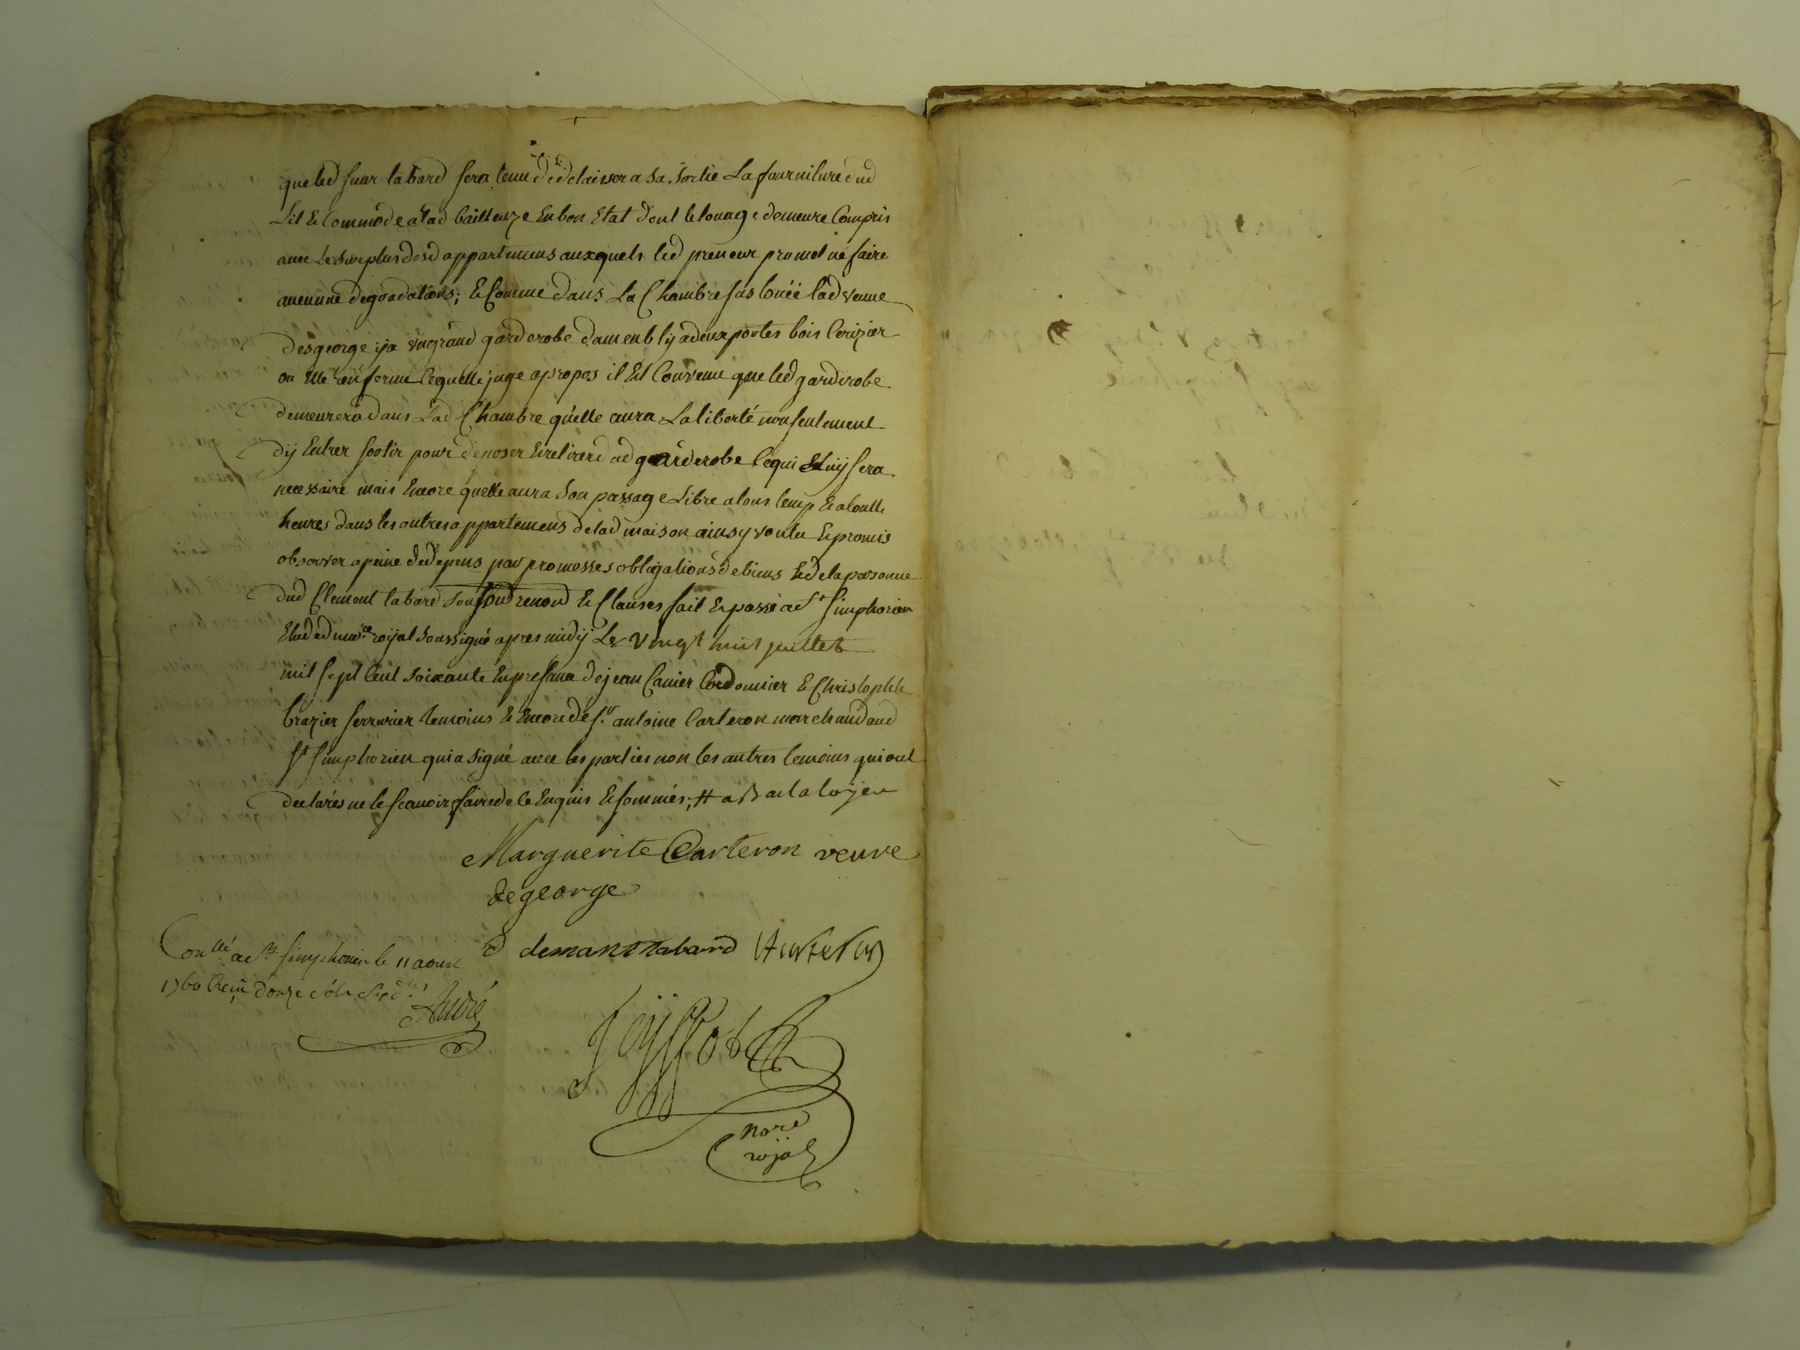 que led sieur tabard sera tenu de delaisser a Sa Sortie La fourniture dud
Lit & Commode a lad bailleuze En bon Etat dont le louage demeure Compris
avec Le Surplus desd appartemens auxquels led preneur promet ne faire
aucunne degradations; & Comme dans La Chambre sus louée lad veuve
Desgeorge y a un grand garderobe a deux portes bois Cerizier
ou Elle renferme Ce quelle juge apropos il Est Convenu que led garderobe
demeurera dans Lad Chambre quelle aura La liberté non seulement
dÿ Entrer sortir pour deposer & retirer dud garderobe Ce qui Luy sera
necessaire mais Encore quelle aura Son passage Libre a tous temp & a toutte
heures dans les autres appartemens de lad maison ainsy voulu & promis
observer a peine de depens par promesses obligations de biens & de la personne
dud Clement tabard renond & Clauses fait & passé a St Simphorien
Etude du nore royal Soussigné apres midÿ Le vingt huit juillet
mil sept Cent Soixante En presence de jean Cordonnier & Christophle
brazier serrurier temoins & Encore de sr antoine Carteron marchand aud
St Simphorien qui a Signé avec les parties non les autres temoins qui ont
declarés ne le scavoir faire de ce Enquis & sommés,
Marguerite Carteron veuve
degeorge
tabard Carteron
Conllé a St simphorien le 11 aoust
1760 Recu Douze Sols
André
nore
roÿal